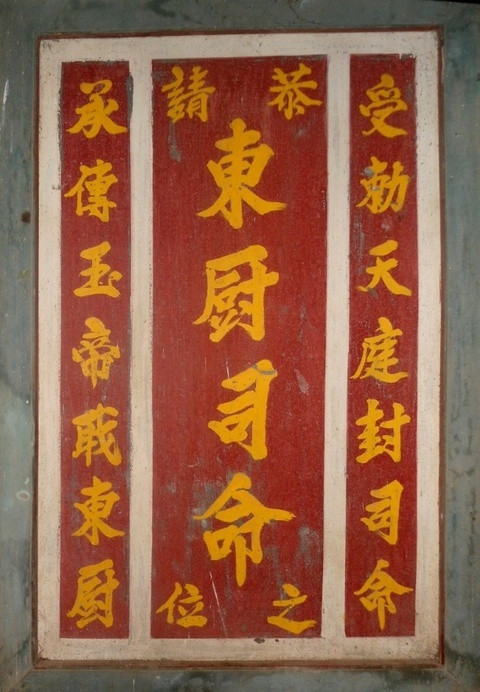 受勅天庭封司命
恭請
東厨司命
之位
承傳玉帝職東厨